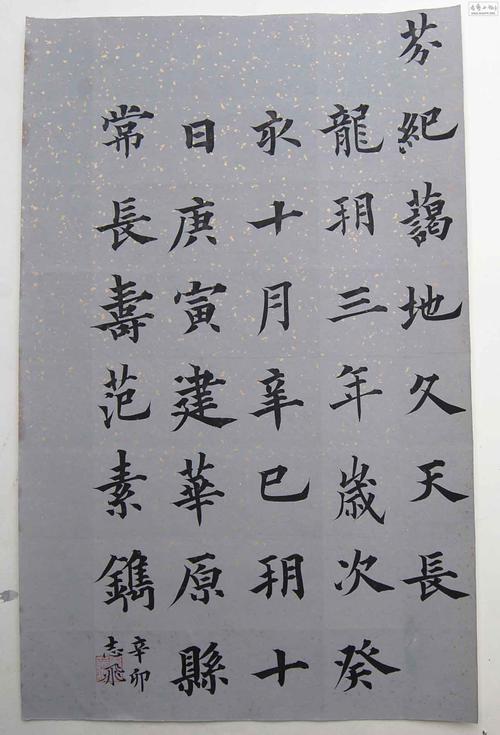 芬紀藹地久天長
龍朔三年歲次癸
亥十月辛巳朔十
日庚寅建華原縣
常長壽范素鐫
辛卯
志飛